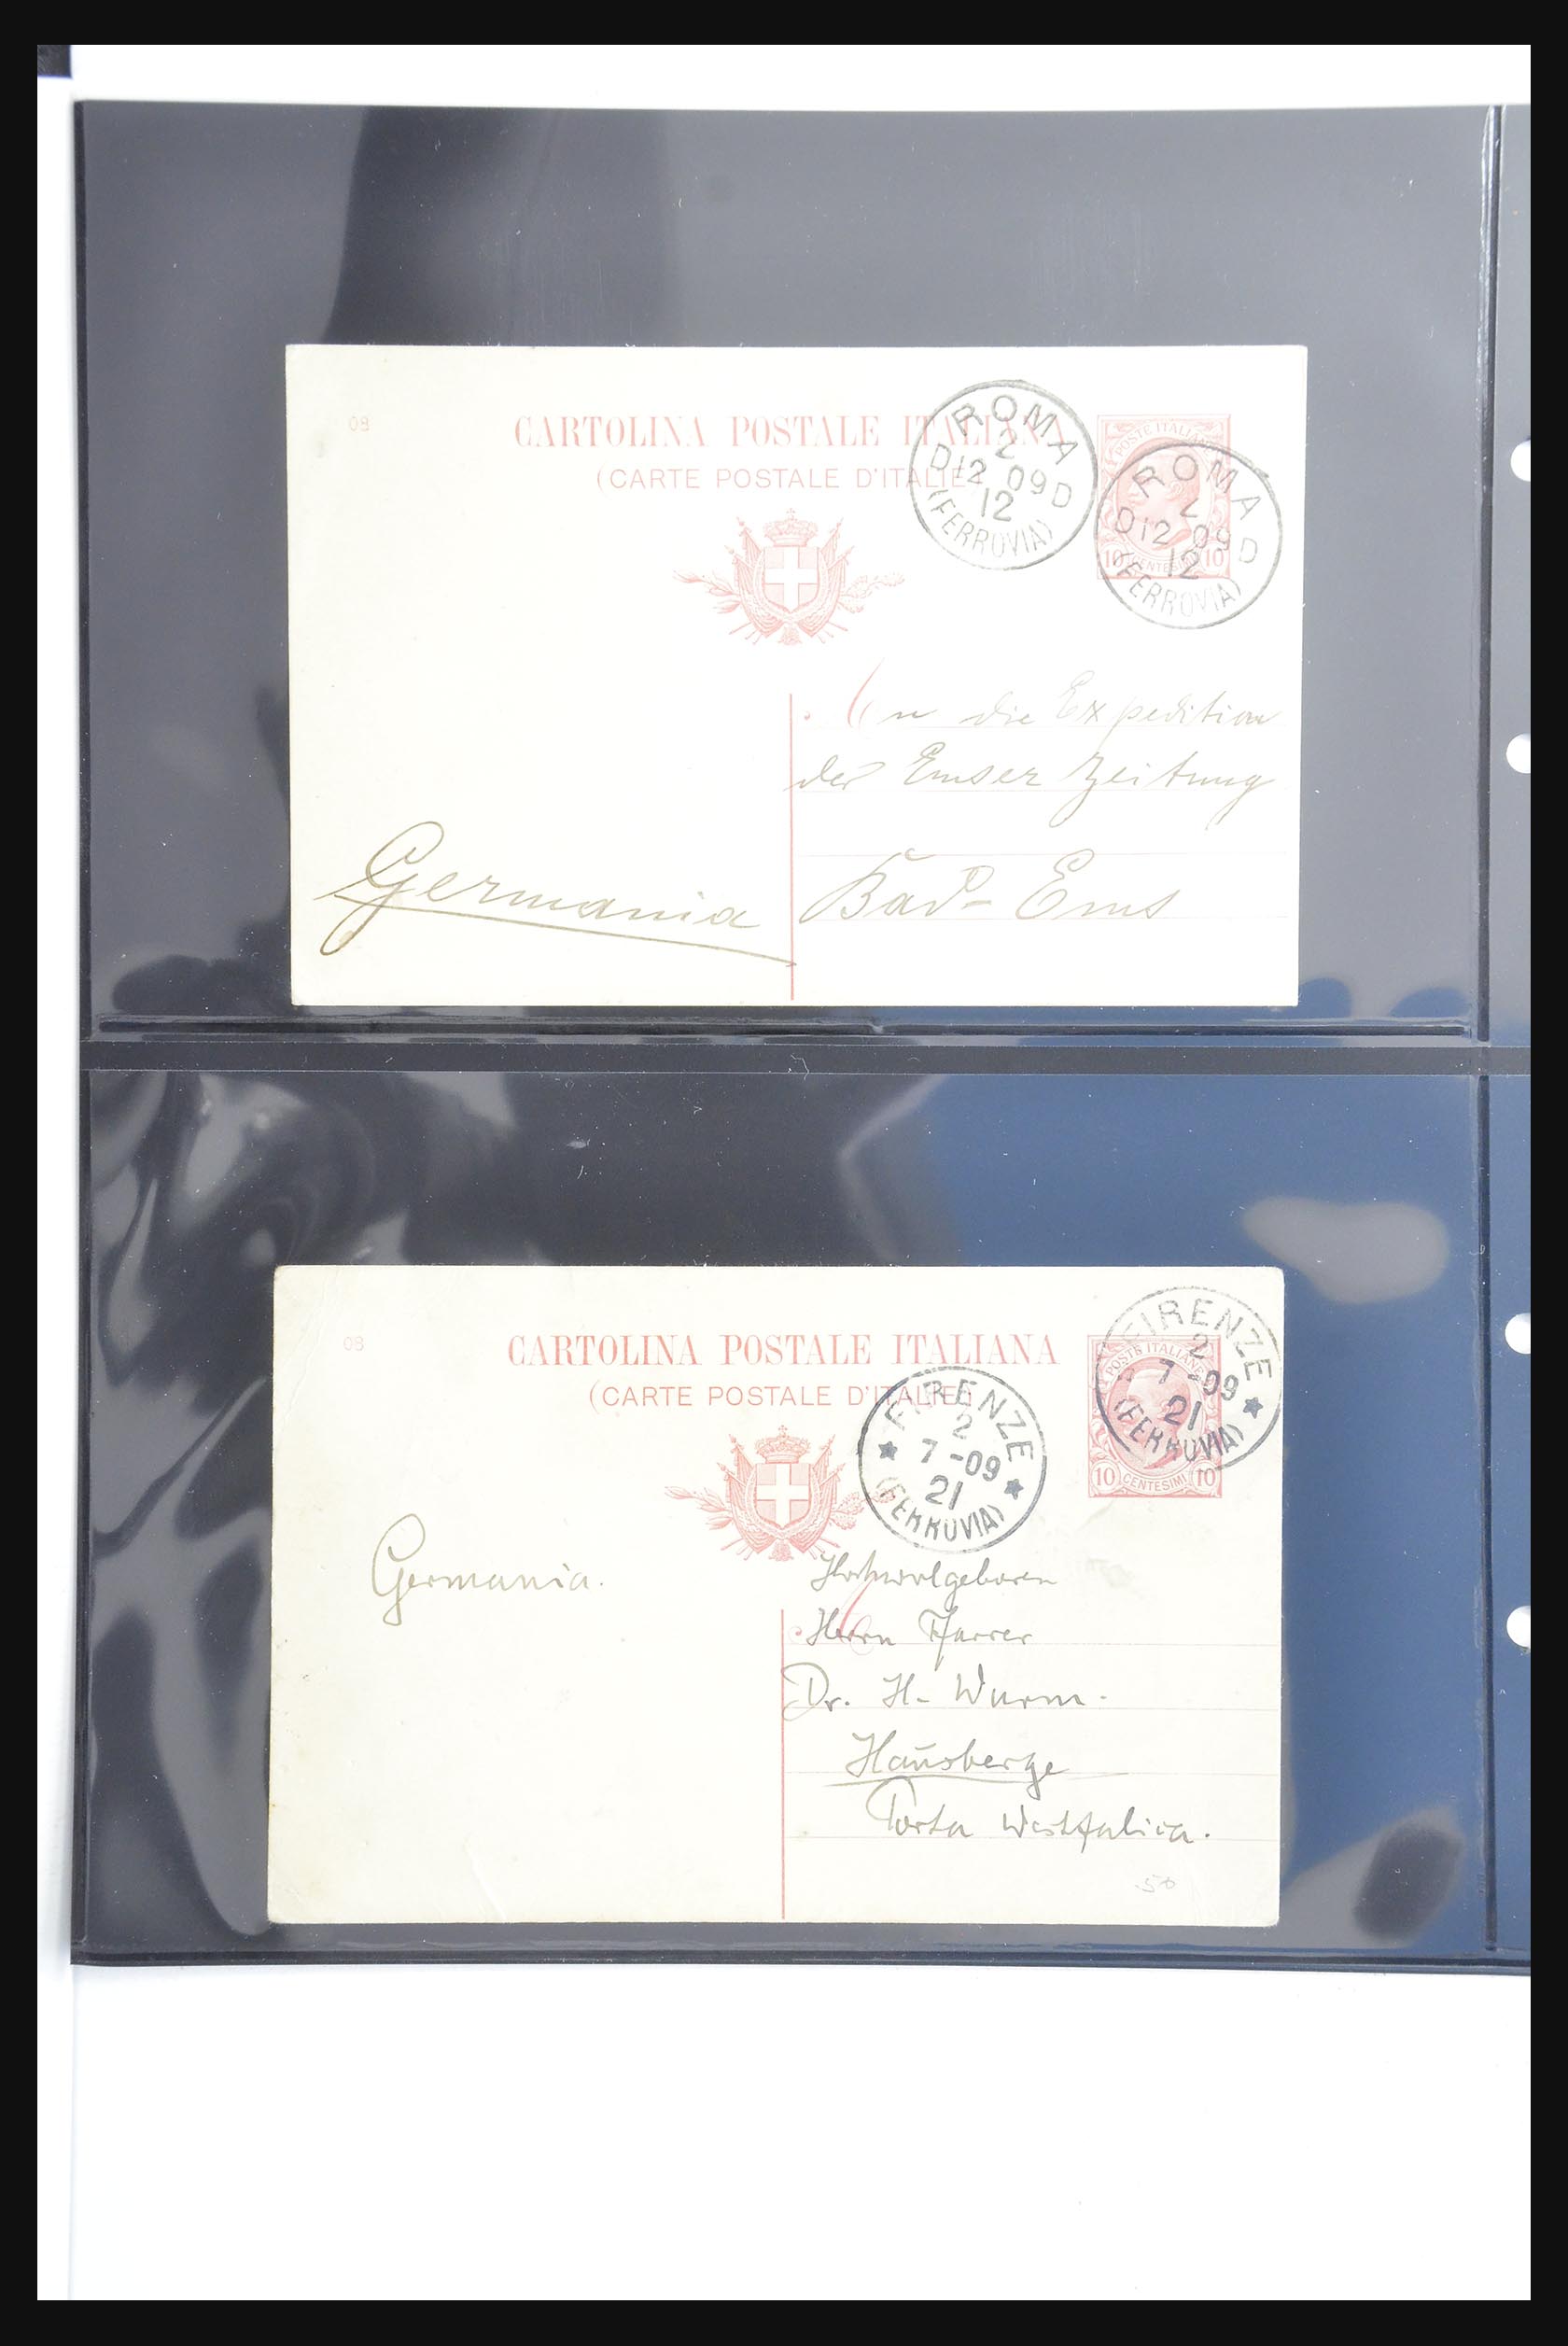 08
CARTOLINA POSTALE ITALIANA
(CARTE POSTALE D'ITALIE)
ROMA
2
D 12 09 D
12
(FERROVIA)
POSTE ITALIANE
10 CENTESIMI 10
ROMA
2
D 12 09 D
12
(FERROVIA)
An die Expedition
der Emser Zeitung
Germania
Bad-Ems
08
CARTOLINA POSTALE ITALIANA
(CARTE POSTALE D'ITALIE)
FIRENZE
2
7 - 09
21
(FERROVIA)
POSTE ITALIANE
10 CENTESIMI 10
FIRENZE
2
7 - 09
21
(FERROVIA)
Germania.
Hochwolgeboren
Herrn Pfarrer
Dr. H. Wurm.
Hausberge
Porta Westfalica.
-50